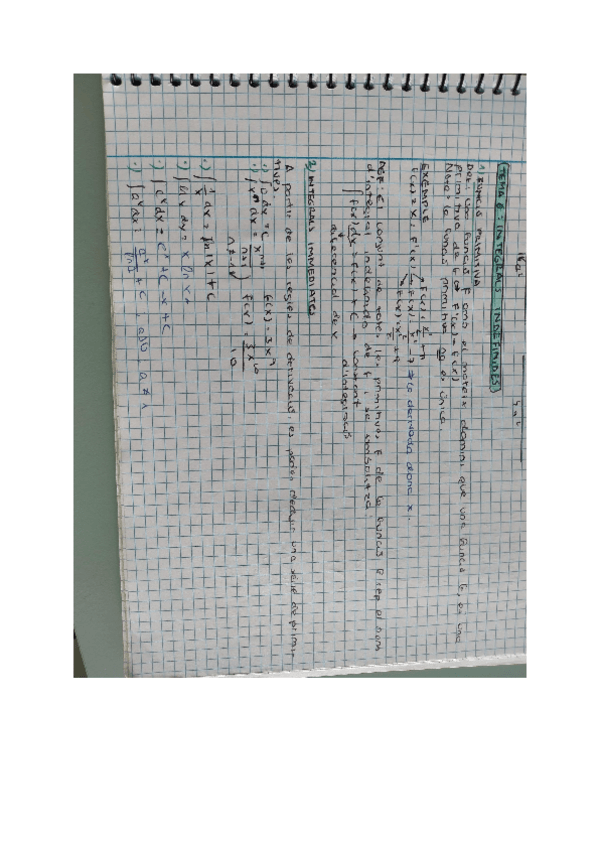 TEMA 6: INTEGRALS INDEFINIDES
1) FUNCIÓ PRIMITIVA
DEF: una funció f amb el mateix domini que una funció F, es una
primitiva de f si F'(x) = f(x)
Nota: la funció primitiva no és única.
EXEMPLE
f(x) = x, F'(x)
→ la derivada dona x.
DEF: El conjunt de totes les primitives F de la funció f rep el nom
d'integral indefinida de f i se simbolitza:
∫ f(x) dx = F(x) + C → constant
d'integració
diferencial de x
2) INTEGRALS IMMEDIATES
A partir de les regles de derivació, es poden deduir una sèrie de primi-
tives
·) ∫ 0 dx = C
·) ∫ xⁿ dx = xⁿ⁺¹
n+1
f(x) = 3x⁹
F(x) = 3x¹⁰
10
·) ∫ 1/x dx = ln|x| + C
·) ∫ ln x dx = x ln x
·) ∫ eˣ dx = eˣ + C
·) ∫ aˣ dx = aˣ + C, a>0, a≠1